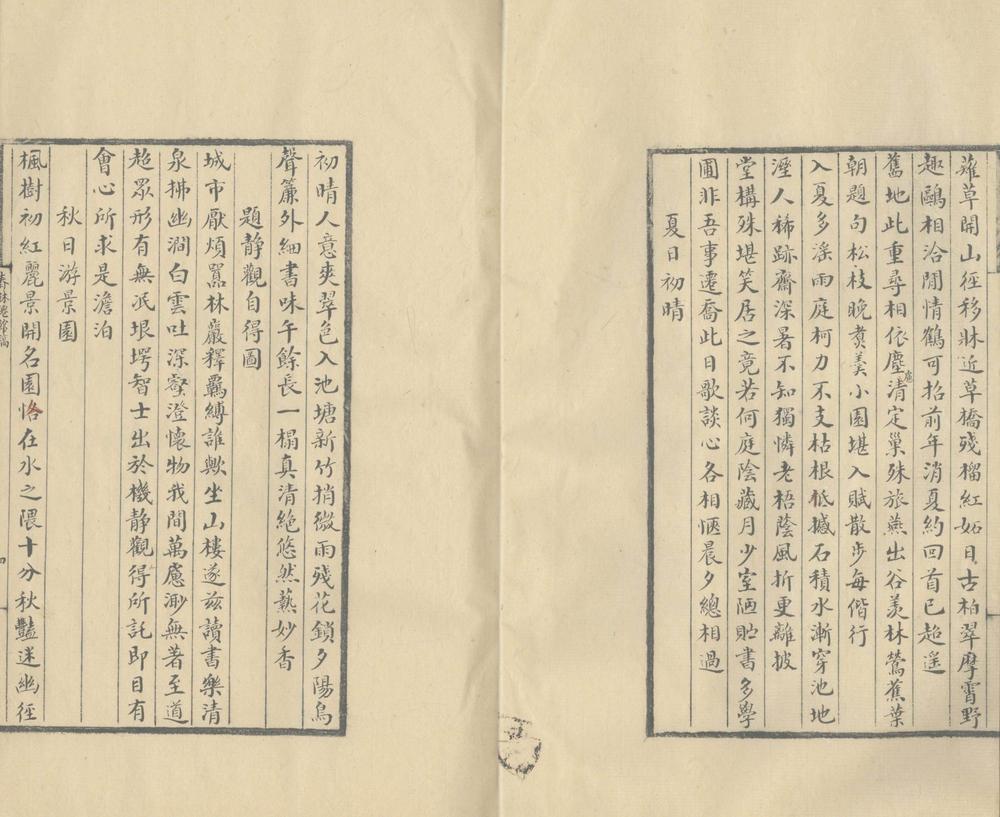 薙草開山徑移牀近草橋殘榴紅如日古柏翠摩霄野
趣鷗相洽閒情鶴可招前年消夏約回首已超遥
舊地此重尋相依塵清定巢殊旅燕出谷羨林鶯蕉葉
朝題句松枝晚煑羹小園堪入賦散步每偕行
入夏多淫雨庭柯力不支枯根柢撼石積水漸穿池地
溼人稀跡齋深暑不知獨憐老梧蔭風折更離披
堂構殊堪笑居之竟若何庭陰藏月少室陋貯書多學
圃非吾事遷喬此日歌談心各相愜晨夕總相過
夏日初晴
初晴人意爽翠色入池塘新竹捎微雨殘花鎖夕陽鳥
聲簾外細書味午餘長一榻真清絶悠然爇妙香
題靜觀自得圖
城市厭煩囂林巖釋羈縛誰歟坐山樓遂茲讀書樂清
泉拂幽澗白雲吐深壑澄懷物我間萬慮渺無著至道
超眾形有無泯垠堮智士出於機靜觀得所託即目有
會心所求是澹泊
秋日游景園
楓樹初紅麗景開名園恪在水之隈十分秋豔迷幽徑